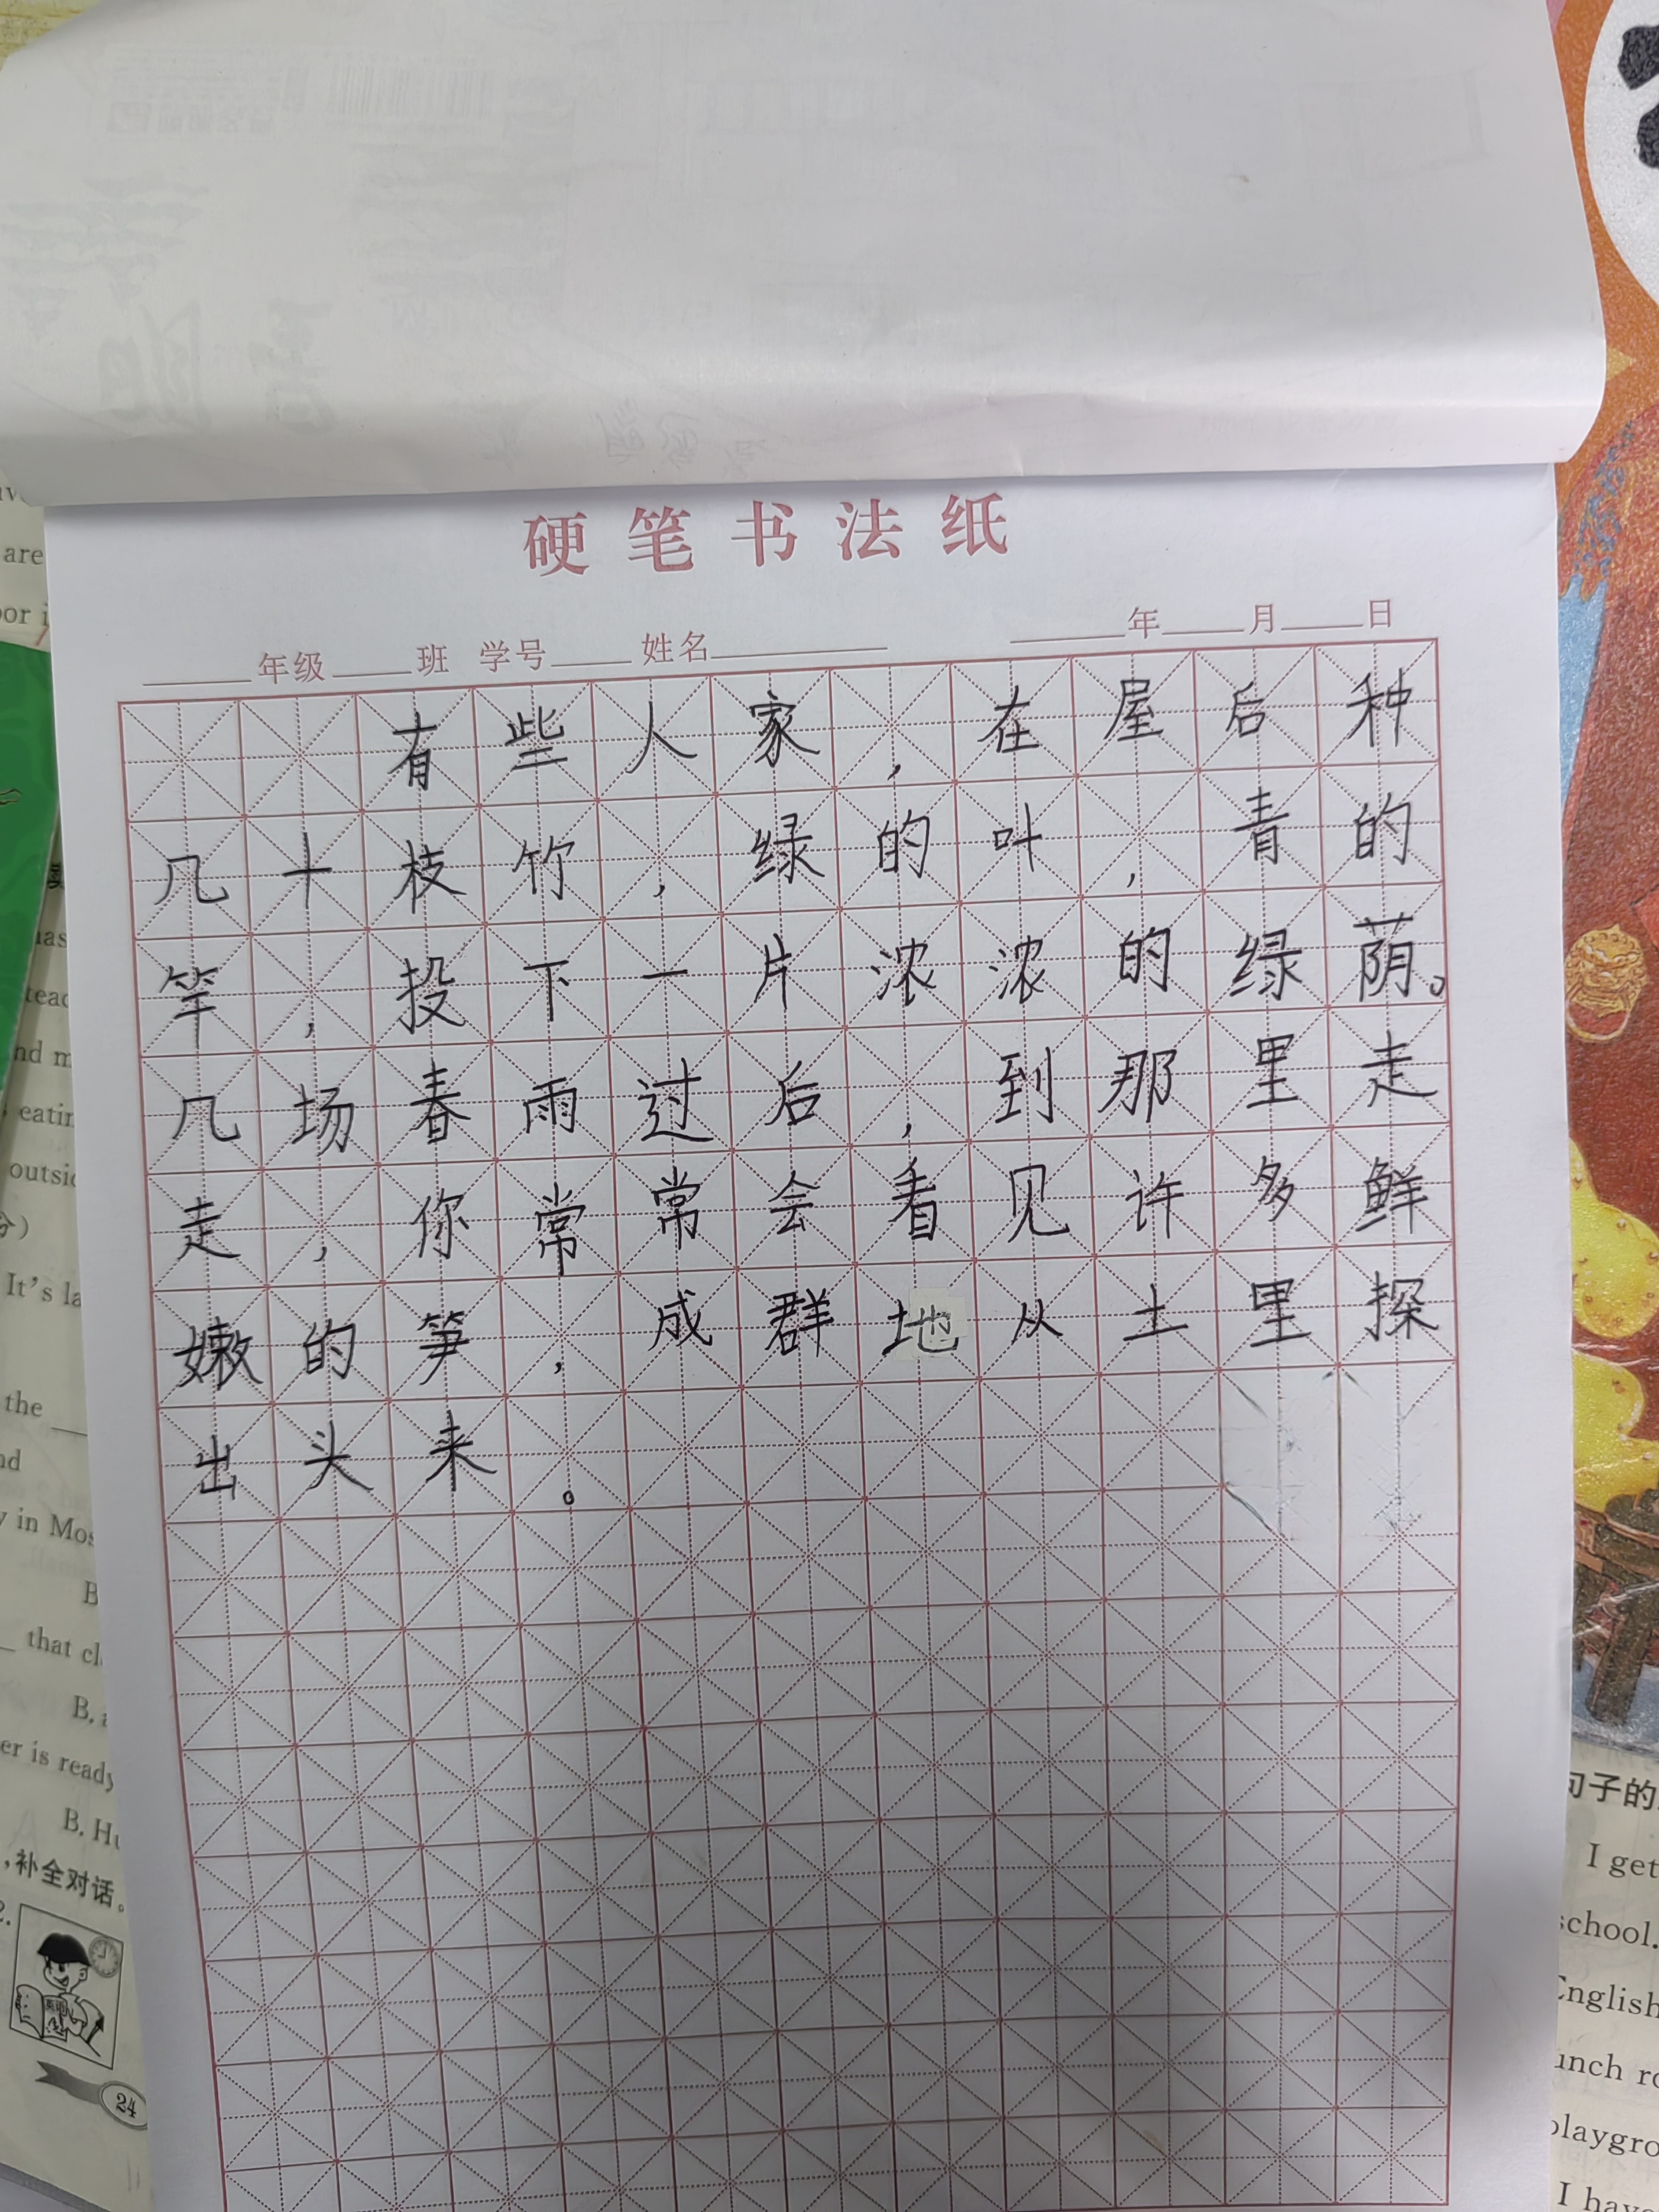 硬笔书法纸
____年级____班 学号____ 姓名________ ____年____月____日
有些人家，在屋后种
几十枝竹，绿的叶，青的
竿，投下一片浓浓的绿荫。
几场春雨过后，到那里走
走，你常常会看见许多鲜
嫩的笋，成群地从土里探
出头来。
are
oor i
nd m
eatin
outsid
分）
It's la
the ____
nd
y in Mos
B
that cl
B.
er is ready
B. Hu
，补全对话。
2.
24
句子的
I get
school.
English
unch ro
playgro
I have